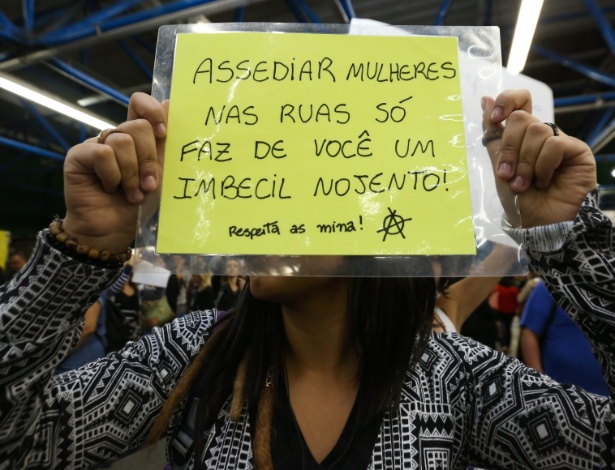 ASSEDIAR MULHERES
NAS RUAS SÓ
FAZ DE VOCÊ UM
IMBECIL NOJENTO!
Respeita as mina!